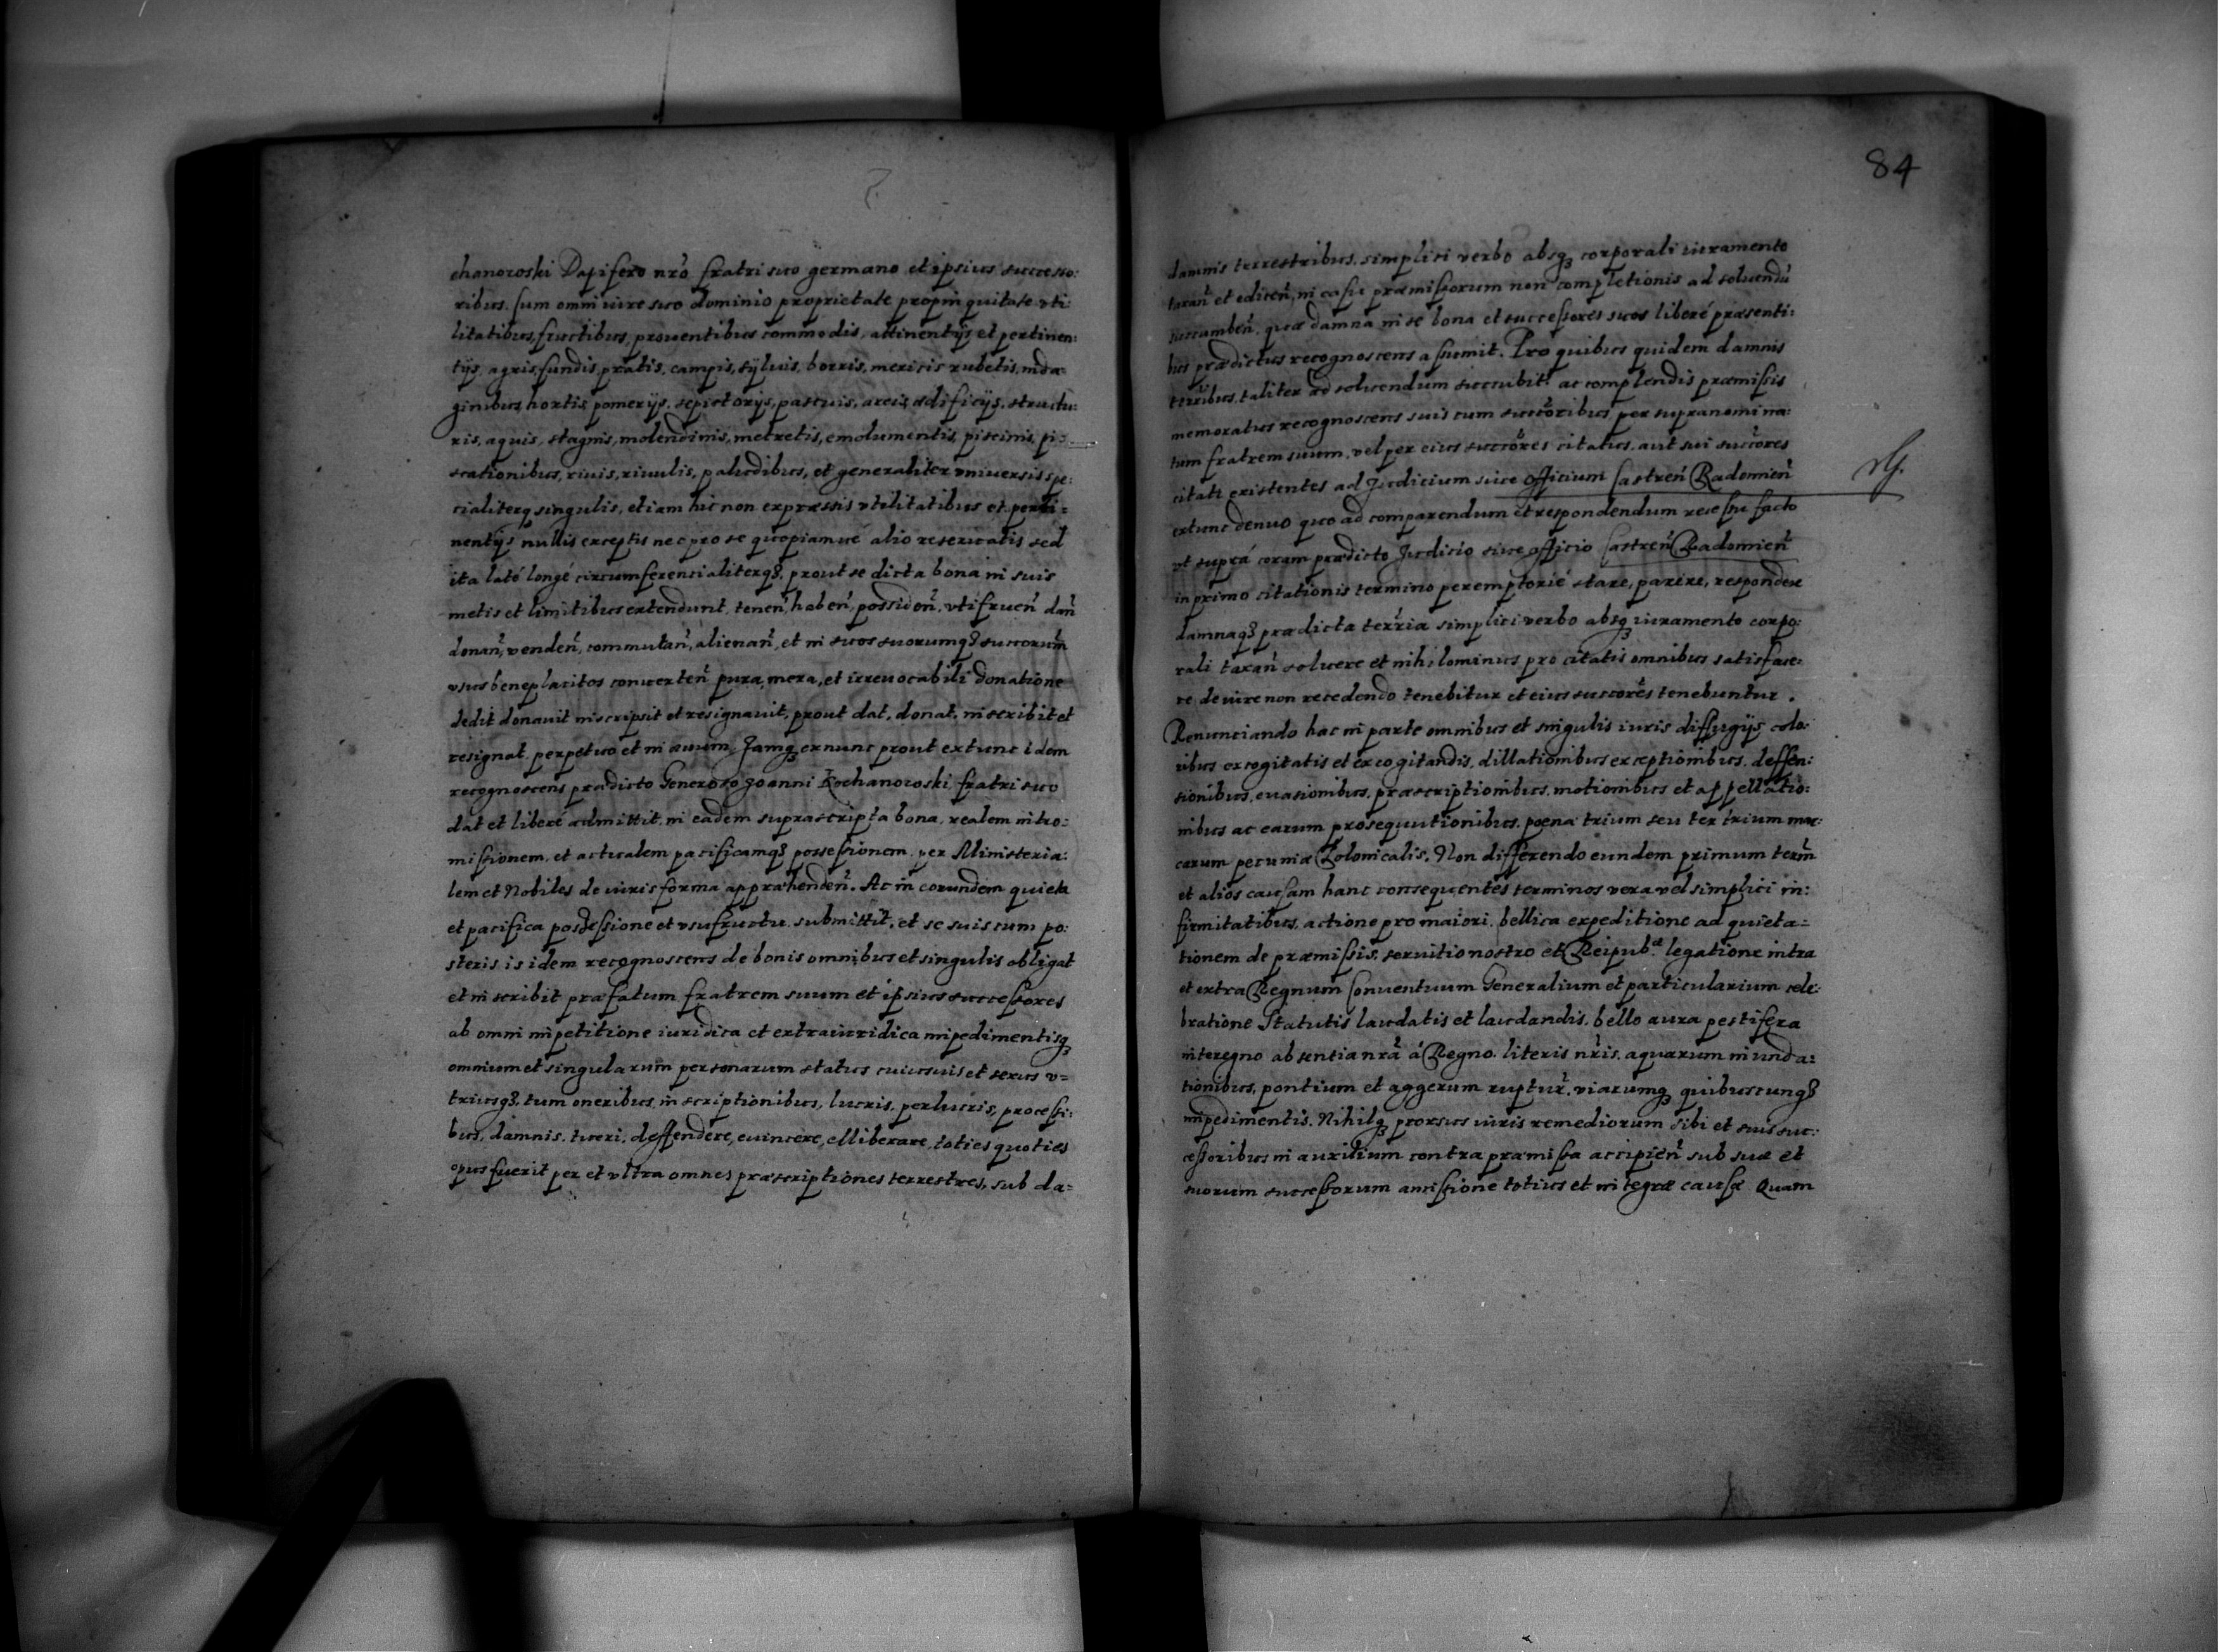 chanowski Dapifero nrõ fratri suo germano et ipsius successo:
ribus. Cum omni iure suo dominio proprietate propinquitate vti
litatibus, fructibus, prouentibus commodis, attinentijs et pertinen:
tijs, agris, fundis, pratis, campis, syluis, borris, mericis rubetis, inda
ginibus, hortis, pomerijs, sepictorijs, pascuis, areis, ædificijs, structu:
ris, aquis, stagnis, molendinis, metretis, emolumentis, piscinis, pi:
scationibus, riuis, riuulis, paludibus, et generaliter vniuersis spe:
cialiterq singulis, etiam hic non expressis vtilitatibus et perti:
nentijs nullis exceptis nec pro se quopiamué alio reseruatis sed
ita laté longé circumferencialiterqꝫ, prout se dicta bona in suis
metis et limitibus extendunt, tenen̄, haben̄, possiden̄, vtifruen̄ dan̄
donan̄, venden̄, commutan̄, alienan̄, et in suos suorumqꝫ succorum̃
vsus beneplacitos conuerten̄ pura, mera, et irreuocabili donatione
dedit donauit inscripsit et resignauit, prout dat, donat, inscribit et
resignat perpetuo et in æuum, Jamqꝫ exnunc prout extunc idem
recognoscens prædicto Generoso Joanni Kochanowski fratri suo
dat et liberé admittit, in eadem suprascripta bona, realem intro:
missionem, et actualem pacificamqꝫ possessionem, per Ministeria:
lem et Nobiles de iuris forma appræhenden̄. Ac in eorundem quieta
et pacifica possessione et vsufructu submittit, et se suis cum po:
steris is idem recognoscens de bonis omnibus et singulis obligat
et inscribit præfatum fratrem suum et ipsius successores
ab omni impetitione iuridica et extraiuridica impedimentisqꝫ
omnium et singularum personarum status cuiusuis et sexus v=
triusqꝫ, tum oneribus, inscriptionibus, lucris, perlucris, processi:
bus, damnis, tueri, deffendere, euincere, elliberare, toties quoties
opus fuerit per et vltra omnes præscriptiones terrestres, sub da=
84
damnis terrestribus, simplici verbo absqꝫ corporali iuramento
taxan̄ et edicen̄, in casu præmissorum non completionis ad soluendũ
succumben̄, quæ damna in se bona et successores suos liberé præsenti:
bus prædictus recognoscens assumit. Pro quibus quidem damnis
terribus, taliter ad soluendum succubit: ac complendis præmissis
memoratus recognoscens suis cum succoribus, per supranomina:
tum fratrem suum, vel per eius succores citatus, aut sui succores
citati existentes ad Judicium siue officium Castren̄ Radomien̄
extunc denuo quo ad comparendum et respondendum recessu facto
vt suprá coram prædicto Judicio siue officio Castren̄ Radomien̄
in primo citationis termino peremptorié stare, parere, respondere
damnaqꝫ prædicta terria simplici verbo absqꝫ iuramento corpo:
rali taxan̄ soluere et nihilominus pro citatis omnibus satisface:
re, de iure non recedendo tenebitur et eius succores tenebuntur.
Renunciando hac in parte omnibus et singulis iuris diffugijs colo:
ribus excogitatis et excogitandis, dillationibus exceptionibus, deffen:
sionibus, euasionibus, præscriptionibus, motionibus et appellatio:
nibus ac earum prosequutionibus, poena trium seu ter trium mar:
carum pecuniæ Polonicalis. Non differendo eundem primum term̃
et alios causam hanc consequentes terminos vera vel simplici in:
firmitatibus, actione pro maiori, bellica expeditione ad quieta=
tionem de præmissis, seruitio nostro et Reipubᶜᵉ legatione intra
et extra Regnum Conuentuum Generalium et particularium cele:
bratione Statutis laudatis et laudandis, bello aura pestifera
interegno absentia nrã á Regno. literis nr̃is, aquarum inunda:
tionibus, pontium et aggerum ruptur̃, viarumqꝫ quibuscunqꝫ
impedimentis. Nihilqꝫ prorsus iuris remediorum sibi et suis suc:
cessoribus in auxilium contra præmissa accipien̄ sub suæ et
suorum successorum amissione totius et integræ causæ Quam